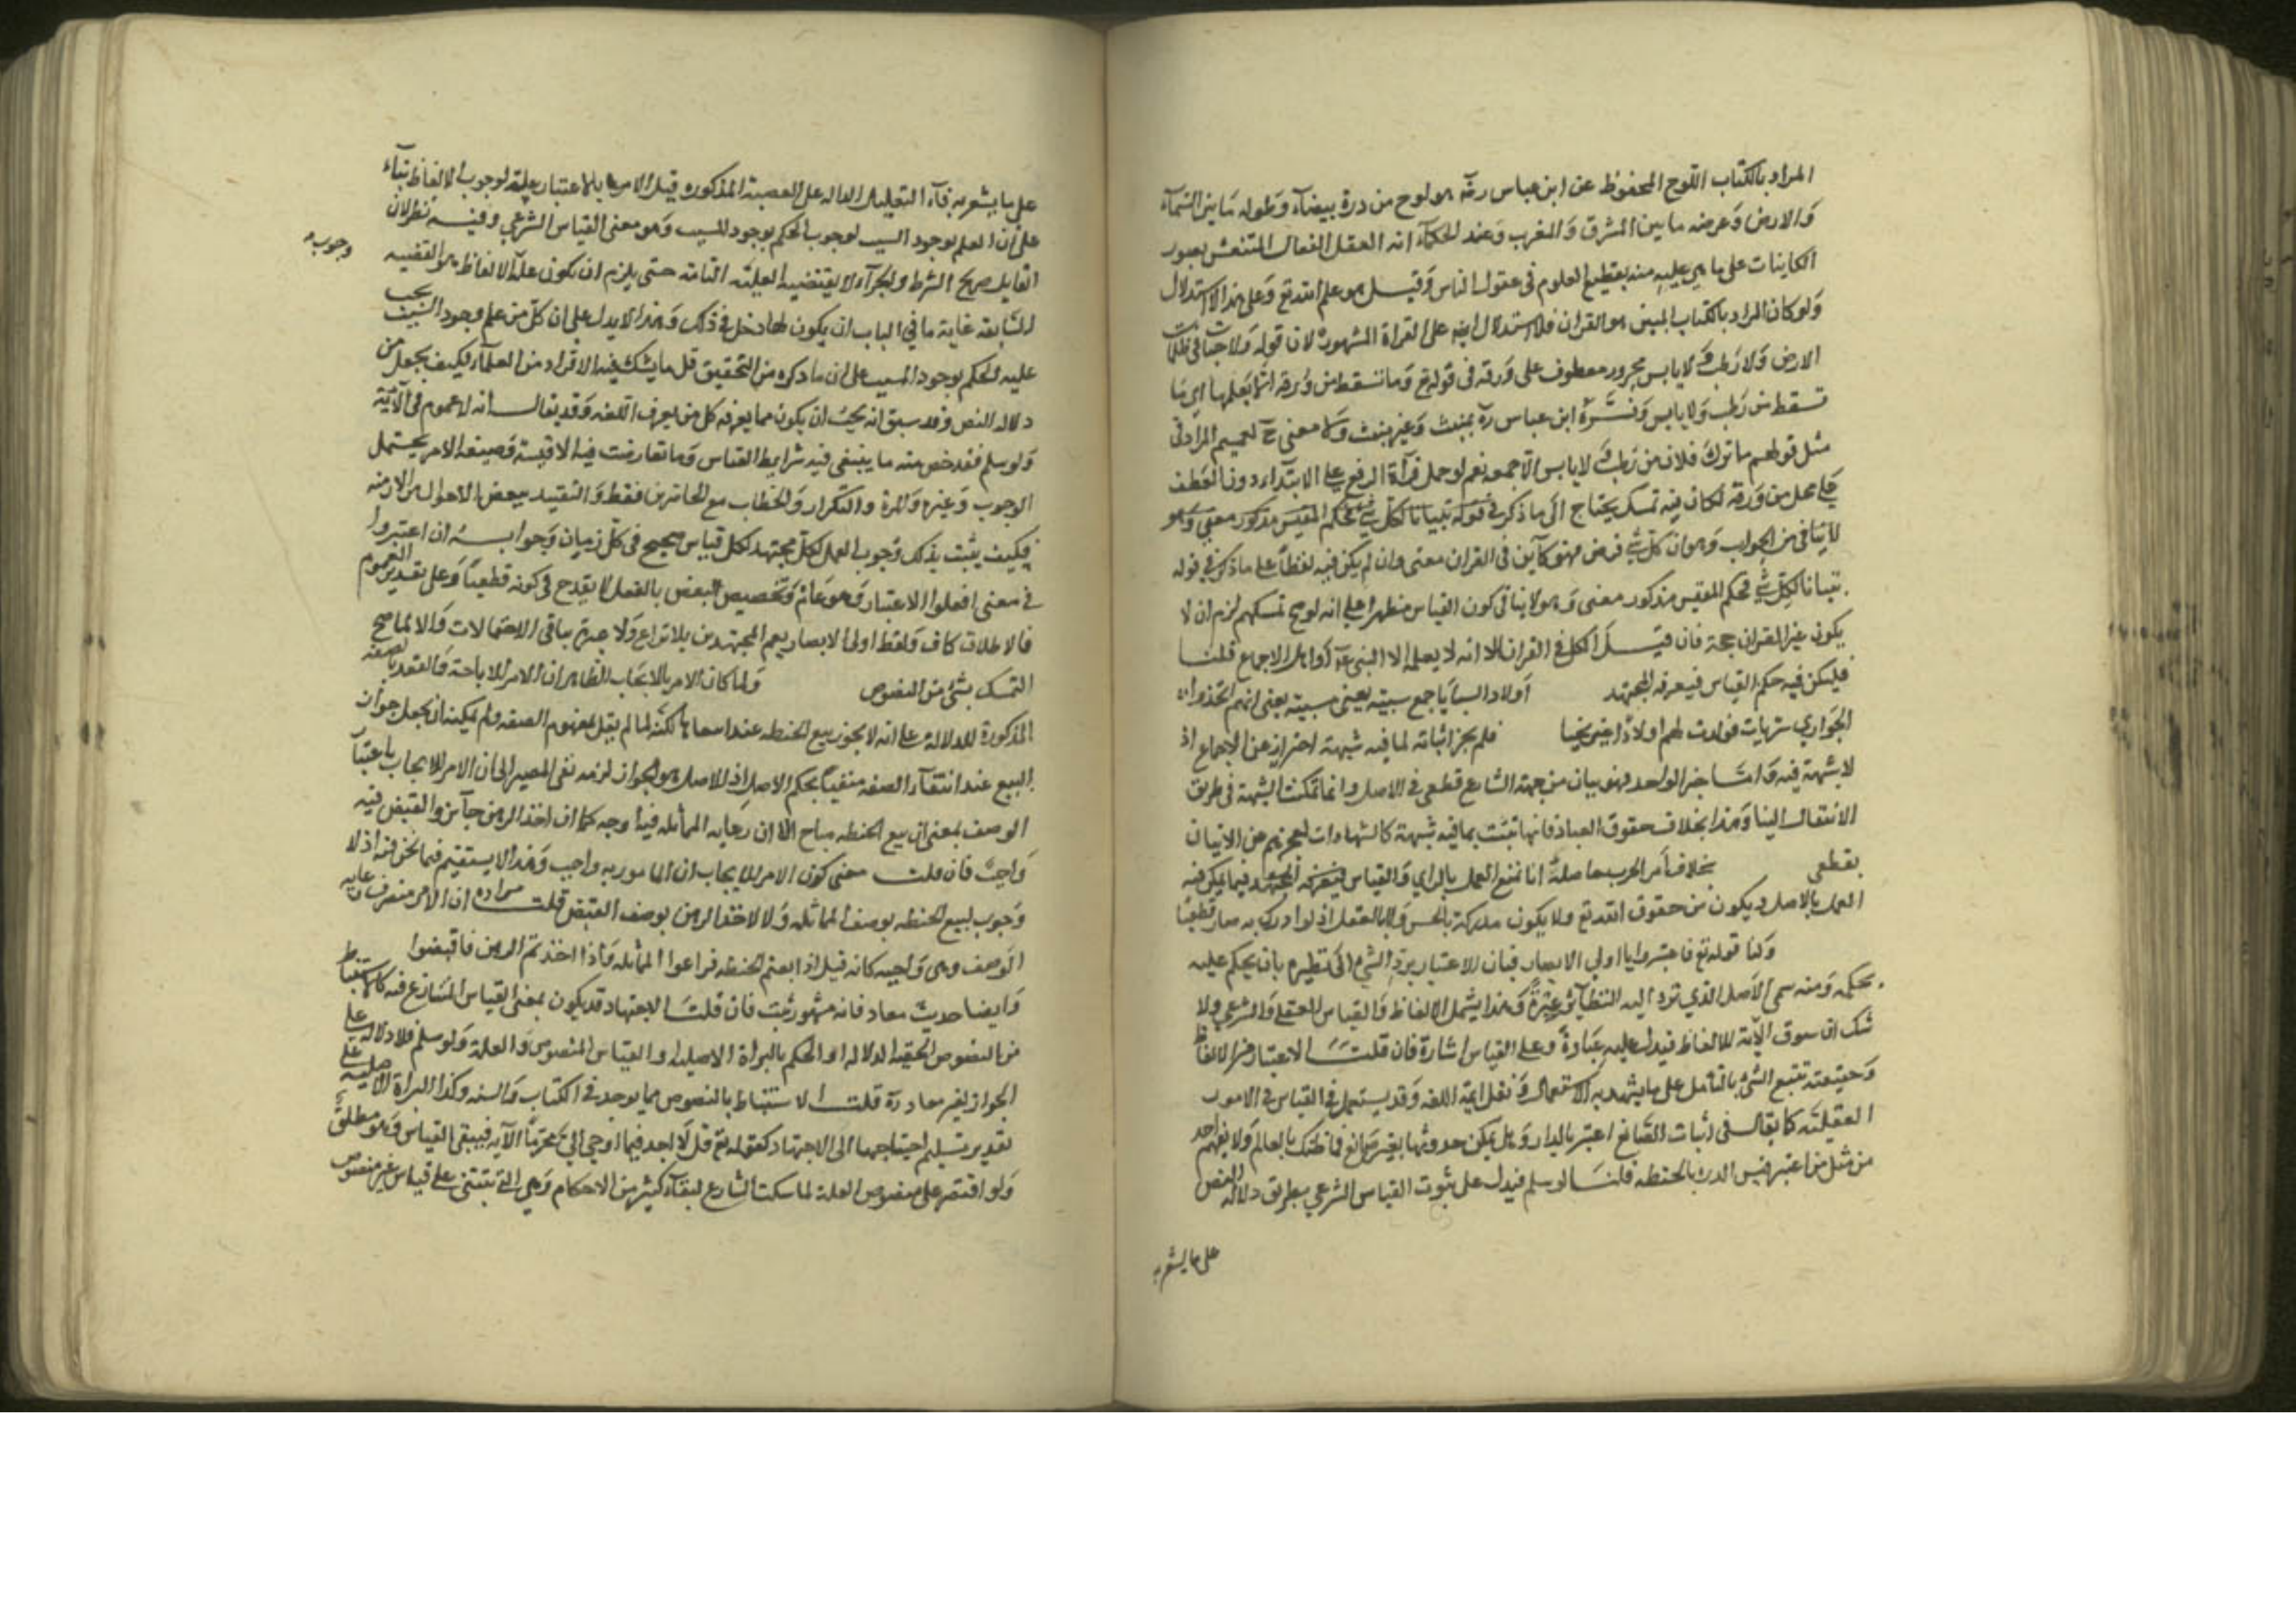 المراد بالكتاب اللوح المحفوظ عن ابن عباس رضه هو لوح من درة بيضآء وطوله ما بين السمآء
والارض وعرضه ما بين المشرق والمغرب وعند الحكمآء انه العقل الفعال المتنقش بصور
الكاينات على ما هي عليه منه ينطبع العلوم في عقول الناس وقيل هو علم الله تع وعلى هذا الاستدلال
ولو كان المراد بالكتاب المبين هو القران فلا استدلال ايضا على القراة المشهورة لان قوله ولا حبة في ظلمات
الارض ولا رطب ولا يابس مجرور معطوف على ورقة في قوله تع وما تسقط من ورقة الا يعلمها اي ما
تسقط من رطب ولا يابس وفسره ابن عباس ره بمنبت وغير منبت ولا معنى ح لتعميم المراد في
مثل قولهم ما ترك فلان من رطب ولا يابس الا جمعه نعم لو حمل قرآة الرفع على الابتداء دون العطف
على محل من ورقة لكان فيه تمسك يحتاج الى ما ذكر في قوله تبيانا لكل شي فحكم المقيس مذكور معنى وهو
لا ينافي من الجواب وهو ان كل شي فرض فهو كآين في القران معنى وان لم يكن فيه لفظا على ما ذكر في قوله
تبيانا لكل شي فحكم المقيس مذكور معنى وهو لا ينافي كون القياس مظهرا على انه لو صح تمسكهم لزم ان لا
يكون غير القران حجة فان قيل الكل في القران الا انه لا يعلمه الا النبي عم او اهل الاجماع قلنا
فليكن فيه حكم القياس فيعرفه المجتهد اولاد السبايا جمع سبية يعني مسبية يعني انهم اتخذوا
الجواري سريات فولدت لهم اولادا غير نجبا فلم يجز اثباته لما فيه شبهة احتراز عن الاجماع اذ
لا شبهة فيه واما خبر الواحد فهو بيان من جهة الشارع قطعي في الاصل وانما تمكنت الشبهة في طريق
الانتقال الينا وهذا بخلاف حقوق العباد فانها تثبت بما فيه شبهة كالشهادات لعجزهم عن الاتيان
بقطعي بخلاف امر الحرب حاصله انا نمنع العمل بالراي والقياس فيما يمكن فيه
العمل بالاصل ويكون من حقوق الله تع ولا يكون مدركه بالحس ولا بالعقل اذ لو ادرك به صار قطعيا
ولنا قوله تع فاعتبروا يا اولي الابصار فان الاعتبار رد الشي الى نظيره بان يحكم عليه
بحكمه ومنه سمي الاصل الذي ترد اليه النظآئر عبرة وهذا يشمل الاتعاظ والقياس العقلي والشرعي ولا
شك ان سوق الاية للاتعاظ فيدل عليه عبارة وعلى القياس اشارة فان قلت الاعتبار هو الاتعاظ
وحقيقته تتبع الشي بالتامل على ما يشهد به الاستعمال ونقل ايمة اللغه وقد يستعمل في القياس في الامور
العقلية كما يقال في اثبات الصانع اعتبر بالدار وهل يمكن حدوثها بغير صانع فما ظنك بالعالم ولا يفهم احد
من مثل من اعتبر قيس الذرة بالحنطه قلنا لو سلم فيدل على ثبوت القياس الشرعي بطريق دلالة النص
على ما يشعر به
على ما يشعر به فآء التعليل الداله على القصة المذكوره قبل الامر بالاعتبار علة لوجوب الاتعاظ بناء
على ان العلم بوجود السبب لوجوب الحكم بوجود المسبب وهو معنى القياس الشرعي وفيه نظر لان
وجوب
الفا بل صريح الشرط والجزآء لا يقتضيه العلية التامة حتى يلزم ان يكون علة الاتعاظ هو القضية
السابقه غاية ما في الباب ان يكون لها دخل في ذلك وهذا لا يدل على ان كل من علم وجود السبب يجب
عليه الحكم بوجود المسبب على ان ما ذكره من التحقيق قل ما يشك فيه الافراد من العلمآء فكيف يجعل من
دلاله النص وقد سبق انه يجب ان يكون مما يعرفه كل من يعرف اللغه وقد يقال انه لا عموم في الآية
ولو سلم فقد خص منه ما ينبغي فيه شرايط القياس وما تعارضت فيه الاقيسة وصيغه الامر يحتمل
الوجوب وغيره والمرة والتكرار والخطاب مع الحاضرين فقط والتقييد ببعض الاحوال والازمنه
فكيف يثبت بذلك وجوب العمل لكل مجتهد لكل قياس صحيح في كل زمان وجوابه ان اعتبروا
في معنى افعلوا الاعتبار وهو عام وتخصيص البعض بالفعل لا يقدح في كونه قطعيا وعلى تقدير العموم
فالاطلاق كاف ولفظ اولي الابصار يعم المجتهدين بلا نزاع ولا عبرة بباقي الاحتمالات والا لما صح
التمسك بشي من النصوص ولما كان الامر بالايجاب الظاهر ان الامر للاباحة والتقييد بالصفه
المذكورة للدلالة على انه لا يجوز بيع الحنطه عند انتفائها لكنه لما لم يقل بمفهوم الصفه ولم يمكنه ان يجعل جواز
البيع عند انتفآء الصفه منفيا بحكم الاصل اذ الاصل هو الجواز لزمه نفي المصير الى ان الامر للايجاب باعتبار
الوصف بمعنى ان بيع الحنطه مباح الا ان رعاية المماثله فيه واجبه كما ان اخذ الرهن جآئز والقبض فيه
واجب فان قلت معنى كون الامر للايجاب ان المامور به واجب وهذا لا يستقيم فيما نحن فيه اذ لا
وجوب لبيع الحنطه بوصف المماثله ولا لاخذ الرهن بوصف القبض قلت مراده ان الامر منصرف الى رعاية
الوصف وهي واجبه كانه قيل اذا بعتم الحنطه فراعوا المماثله واذا اخذتم الرهن فاقبضوا
وايضا حديث معاذ فانه مشهور ثبت فان قلت الاجتهاد قد يكون بمعنى القياس المتنازع فيه كالاستنباط
من النصوص الخفيه الدلاله او الحكم بالبراة الاصليه او القياس المنصوص العلة ولو سلم فلا دلالة على
الجواز لغير معاذ ره قلت الاستنباط بالنصوص مما يوجد في الكتاب والسنه وكذا البراة الاصليه على
تقدير تسليم احتياجها الى الاجتهاد كقوله تع قل لا اجد فيما اوحي الي محرما الآيه فيبقى القياس وهو مطلق
ولو اقتصر على منصوص العلة لما سكت الشارع لبقآء كثير من الاحكام وهي التي تبتني على قياس غير منصوص